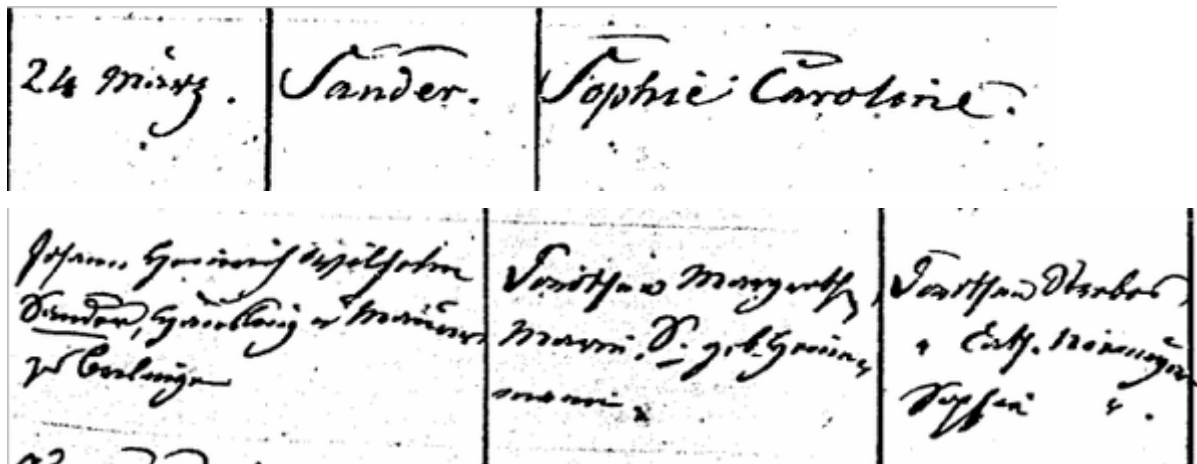 24 März. Sander. Sophie Caroline.
Johann Heinrich Wilhelm
Sander, Häusling u Maurer
zu
Dorothea Margarethe
Marie S. geb. Heine
mann.
Dorothea
" Cath.
Sophie " .